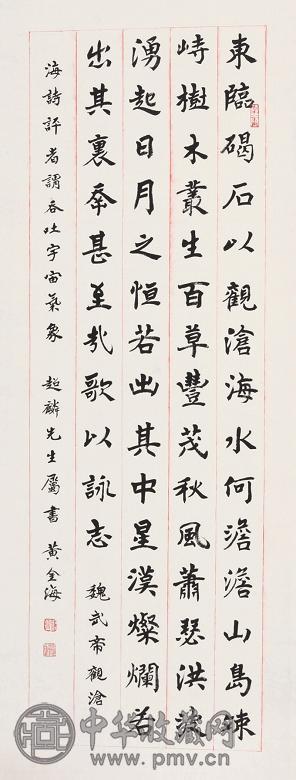 東臨碣石以觀滄海水何澹澹山島竦
峙樹木叢生百草豐茂秋風蕭瑟洪波
湧起日月之恒若出其中星漢燦爛若
出其裏幸甚至哉歌以詠志 魏武帝觀滄
海詩評者謂吞吐宇宙氣象 超麟先生屬書 黄全海
中华收藏网
www.pmv.cn